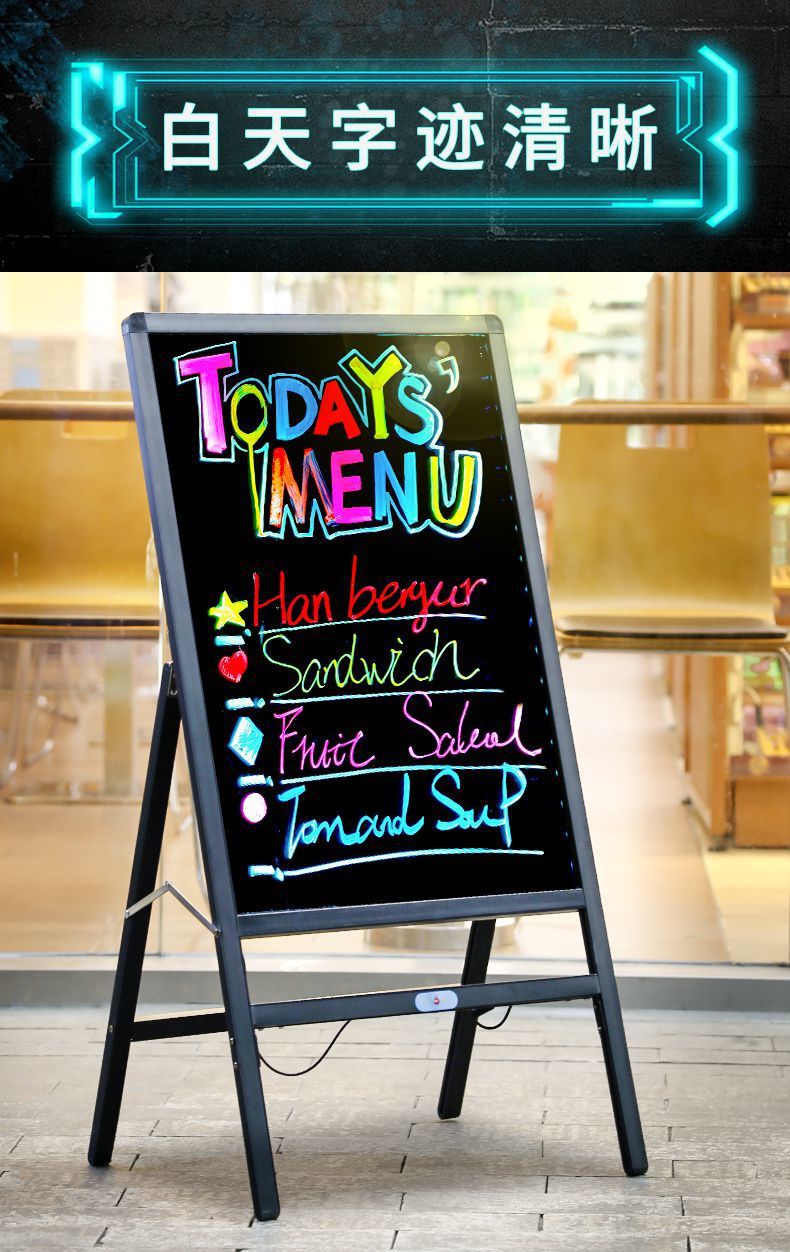 白天字迹清晰
TODAYS'
MENU
Han bergur
Sandwich
Fruit Salead
Tomand Soup